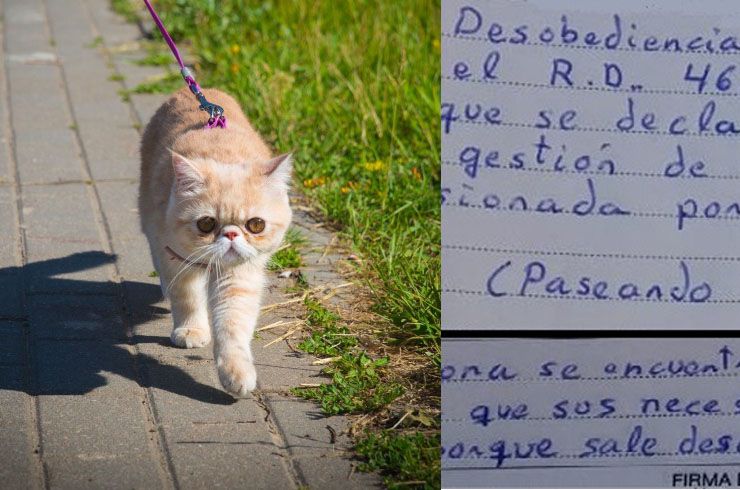 Desobediencia
el R.D. 46
que se decla
gestión de
sionada por
(Paseando
ona se encuent
que sus neces
porque sale des
FIRMA